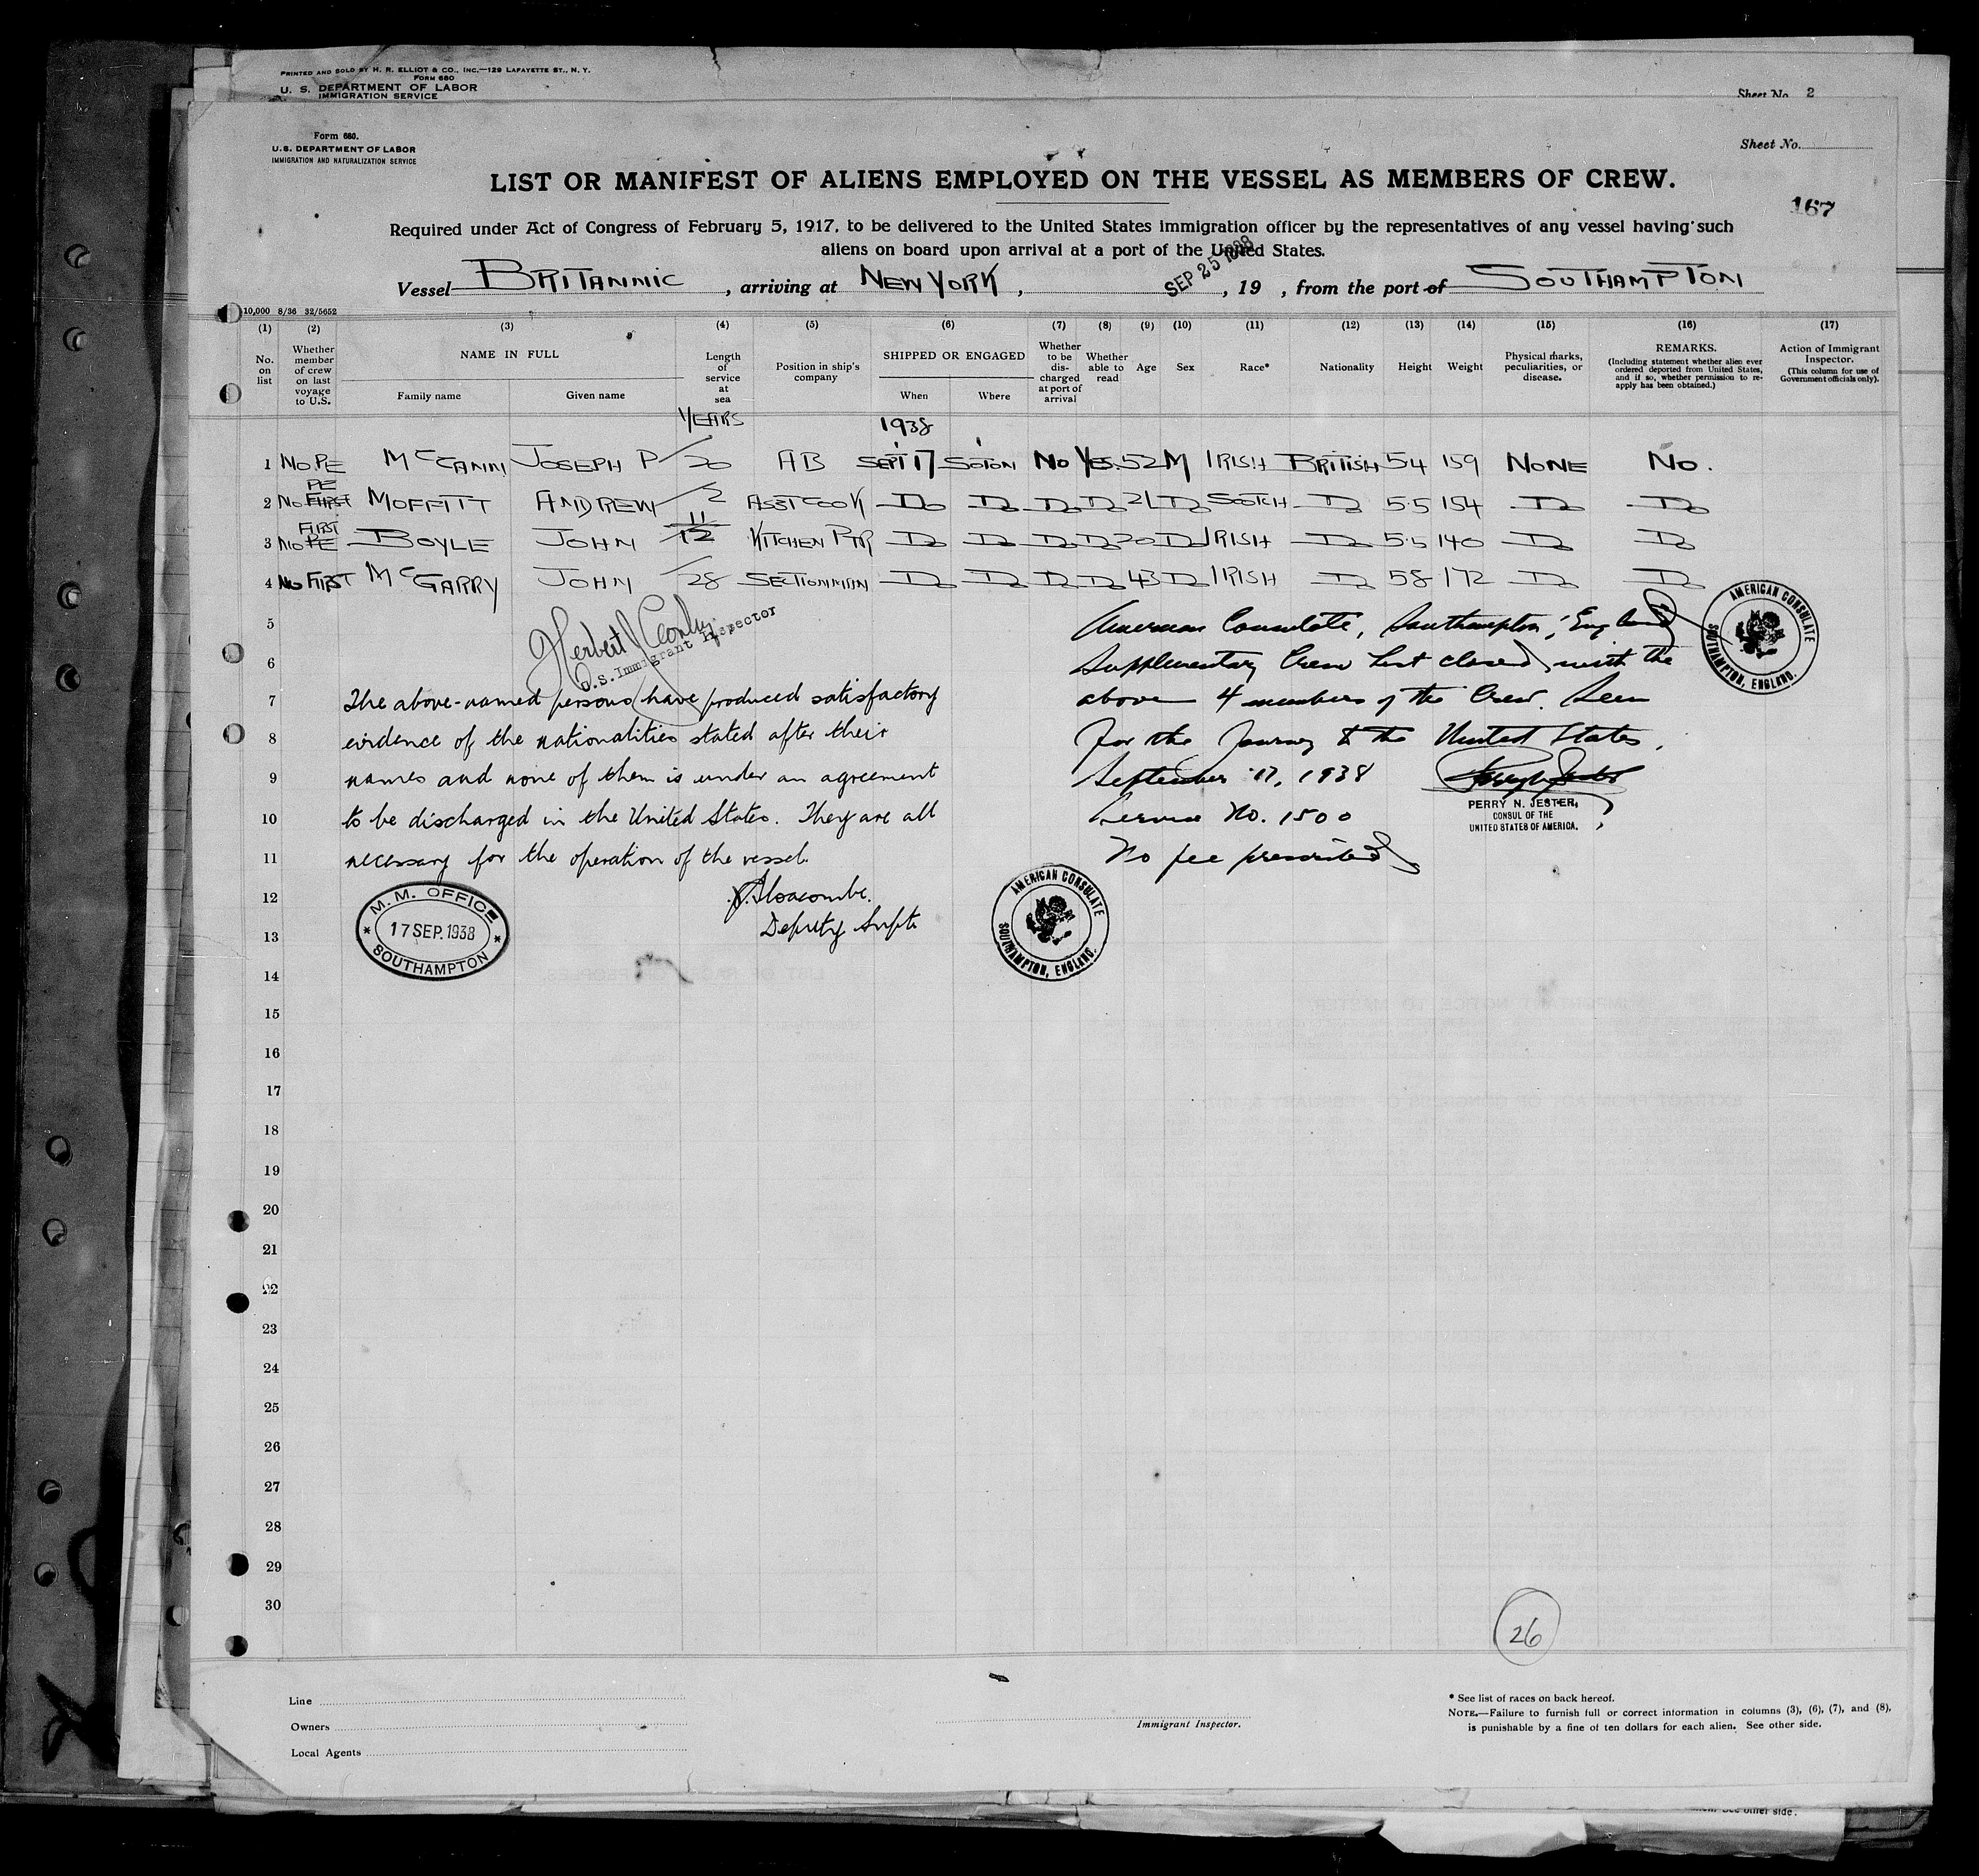 PRINTED AND SOLD BY H. R. ELLIOT & CO., INC.—129 LAFAYETTE ST., N. Y.
FORM 680
U. S. DEPARTMENT OF LABOR
IMMIGRATION SERVICE
Sheet No. 2
Form 680.
U.S. DEPARTMENT OF LABOR
IMMIGRATION AND NATURALIZATION SERVICE
Sheet No.
LIST OR MANIFEST OF ALIENS EMPLOYED ON THE VESSEL AS MEMBERS OF CREW.
167
Required under Act of Congress of February 5, 1917, to be delivered to the United States immigration officer by the representatives of any vessel having such
aliens on board upon arrival at a port of the United States.
Vessel BRITANNIC, arriving at NEW YORK, SEP 25 1938, 19 , from the port of SOUTHAMPTON
10,000 8/36 32/5652
(1) (2) (3) (4) (5) (6) (7) (8) (9) (10) (11) (12) (13) (14) (15) (16) (17)
No. on list
Whether member of crew on last voyage to U.S.
NAME IN FULL
Family name
Given name
Length of service at sea
Position in ship's company
SHIPPED OR ENGAGED
When
Where
Whether to be discharged at port of arrival
Whether able to read
Age
Sex
Race*
Nationality
Height
Weight
Physical marks, peculiarities, or disease.
REMARKS.
(Including statement whether alien ever ordered deported from United States, and if so, whether permission to reapply has been obtained.)
Action of Immigrant Inspector.
(This column for use of Government officials only).
YEARS 1938
1 NO PE McCANN JOSEPH P 20 AB SEPT 17 SOTON NO YES 52 M IRISH BRITISH 54 159 NONE NO.
PE
2 NO FIRST MOFFITT ANDREW 2 ASST COOK Do Do Do Do 21 Do SCOTCH Do 5·5 154 Do Do
FIRST
3 NO PE BOYLE JOHN 11/12 KITCHEN PTR Do Do Do Do 20 Do IRISH Do 5·5 140 Do Do
4 NO FIRST McGARRY JOHN 28 SECTIONMAN Do Do Do Do 43 Do IRISH Do 58 172 Do Do
Herbert
U.S. Immigrant Inspector
The above-named persons have produced satisfactory
evidence of the nationalities stated after their
names and none of them is under an agreement
to be discharged in the United States. They are all
necessary for the operation of the vessel.
Deputy Supt
M. M. OFFICE
17 SEP. 1938
SOUTHAMPTON
American Consulate, Southampton, England
Supplementary Crew List closed with the
above 4 members of the Crew. Seen
for the Journey to the United States.
September 17, 1938
Service No. 1500
No fee prescribed
PERRY N. JESTER,
CONSUL OF THE
UNITED STATES OF AMERICA.
AMERICAN CONSULATE
SOUTHAMPTON, ENGLAND.
AMERICAN CONSULATE
SOUTHAMPTON, ENGLAND.
5
6
7
8
9
10
11
12
13
14
15
16
17
18
19
20
21
22
23
24
25
26
27
28
29
30
26
Line
Owners
Local Agents
Immigrant Inspector.
* See list of races on back hereof.
NOTE.—Failure to furnish full or correct information in columns (3), (6), (7), and (8),
is punishable by a fine of ten dollars for each alien. See other side.
See other side.